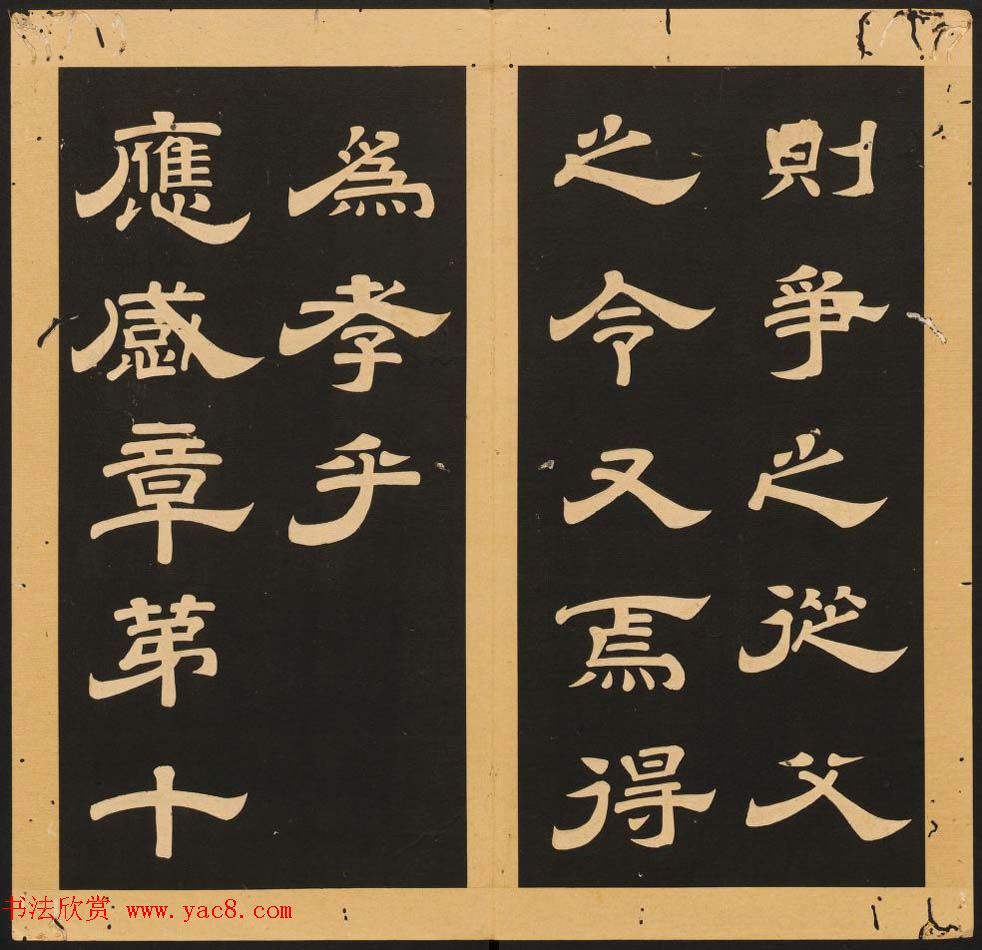 則爭之從父
之令又焉得
為孝乎
應感章第十
书法欣赏 www.yac8.com